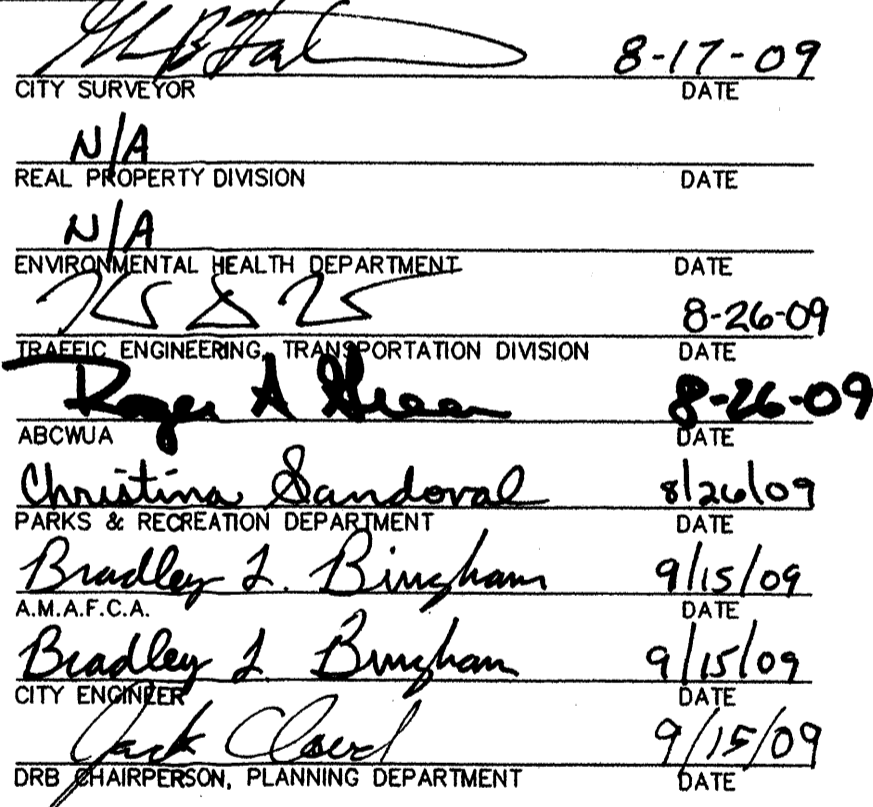 8-17-09
CITY SURVEYOR DATE
N/A
REAL PROPERTY DIVISION DATE
N/A
ENVIRONMENTAL HEALTH DEPARTMENT DATE
8-26-09
TRAFFIC ENGINEERING, TRANSPORTATION DIVISION DATE
Roger A Green 8-26-09
ABCWUA DATE
Christina Sandoval 8/26/09
PARKS & RECREATION DEPARTMENT DATE
Bradley L. Bingham 9/15/09
A.M.A.F.C.A. DATE
Bradley L. Bingham 9/15/09
CITY ENGINEER DATE
Jack Cloud 9/15/09
DRB CHAIRPERSON, PLANNING DEPARTMENT DATE